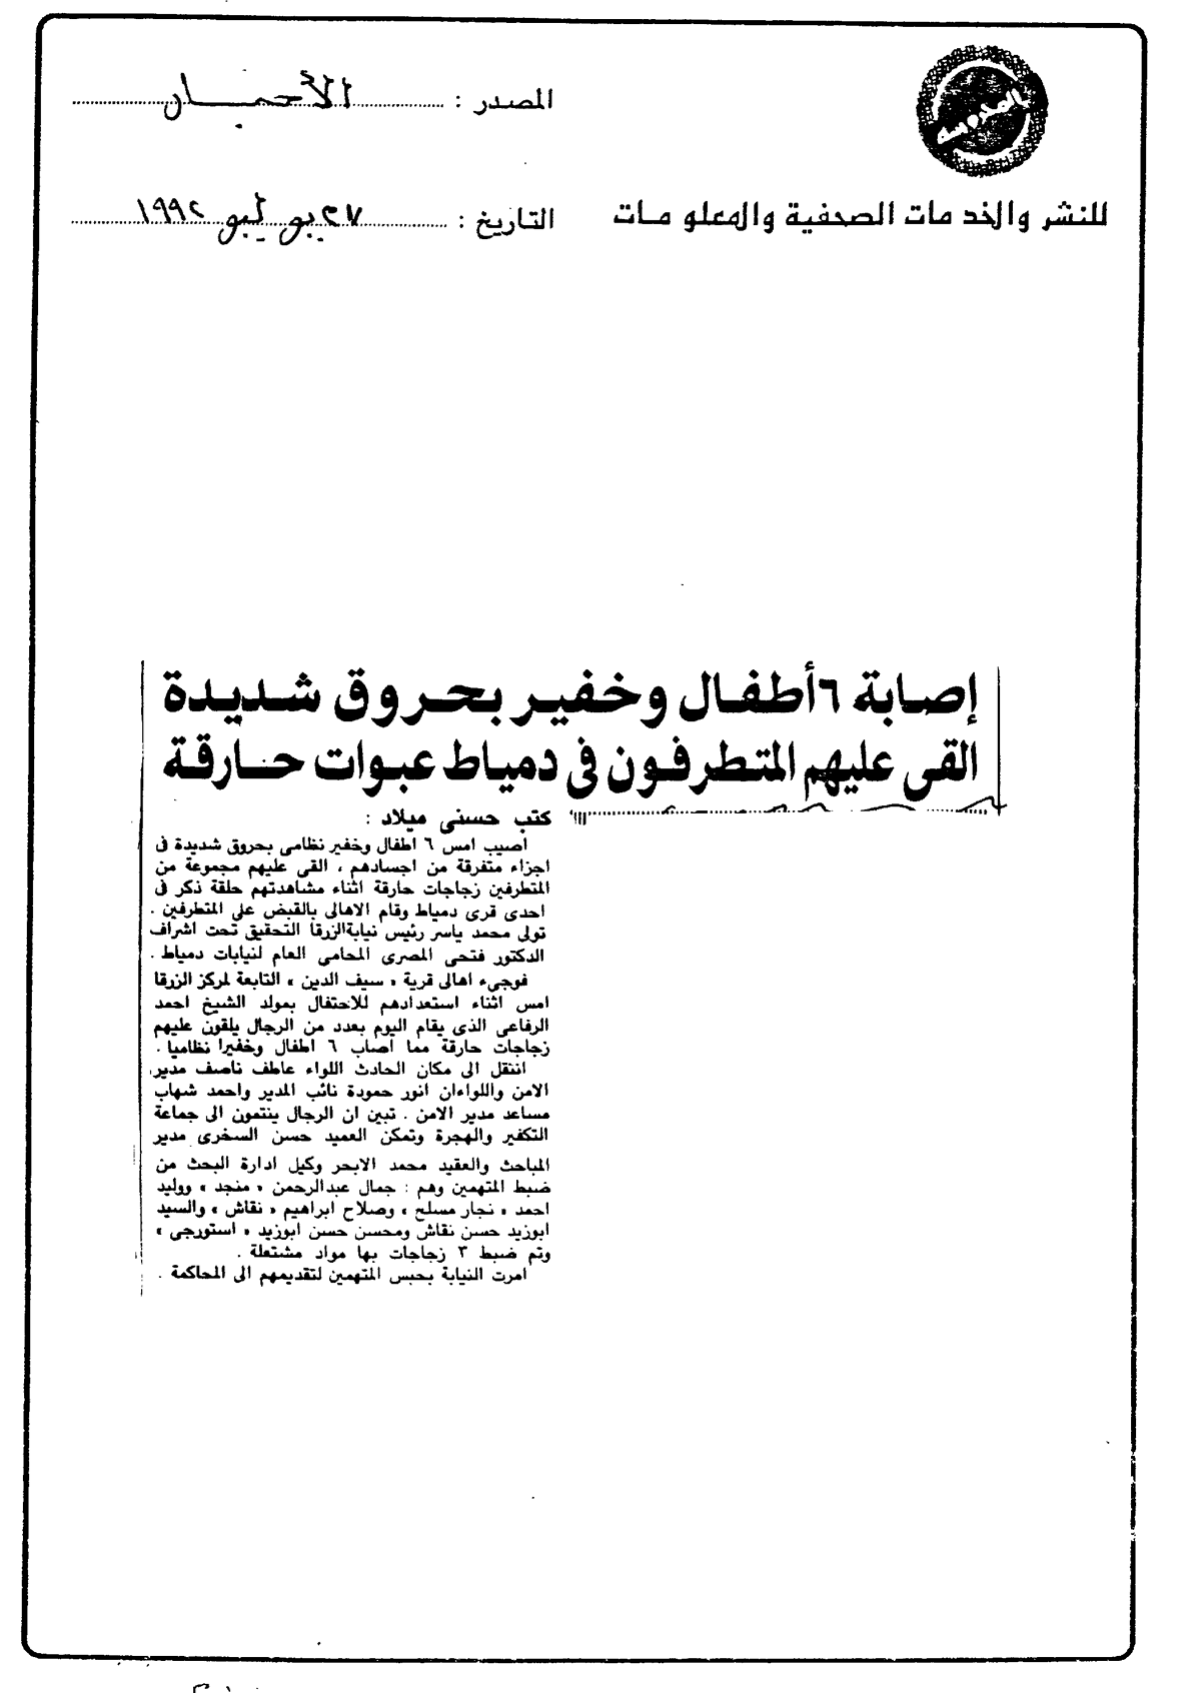 المحروسة
المصدر : الأخبار
للنشر والخدمات الصحفية والمعلومات
التاريخ : ٢٧ يوليو ١٩٩٢
إصابة ٦ أطفال وخفير بحروق شديدة
القى عليهم المتطرفون فى دمياط عبوات حارقة
كتب حسنى ميلاد :
اصيب امس ٦ اطفال وخفير نظامى بحروق شديدة فى
اجزاء متفرقة من اجسادهم ، القى عليهم مجموعة من
المتطرفين زجاجات حارقة اثناء مشاهدتهم حلقة ذكر فى
احدى قرى دمياط وقام الاهالى بالقبض على المتطرفين .
تولى محمد ياسر رئيس نيابة الزرقا التحقيق تحت اشراف
الدكتور فتحى المصرى المحامى العام لنيابات دمياط .
فوجىء اهالى قرية « سيف الدين » التابعة لمركز الزرقا
امس اثناء استعدادهم للاحتفال بمولد الشيخ احمد
الرفاعى الذى يقام اليوم بعدد من الرجال يلقون عليهم
زجاجات حارقة مما اصاب ٦ اطفال وخفيرا نظاميا .
انتقل الى مكان الحادث اللواء عاطف ناصف مدير
الامن واللواءان انور حمودة نائب المدير واحمد شهاب
مساعد مدير الامن . تبين ان الرجال ينتمون الى جماعة
التكفير والهجرة وتمكن العميد حسن السخرى مدير
المباحث والعقيد محمد الابحر وكيل ادارة البحث من
ضبط المتهمين وهم : جمال عبدالرحمن « منجد » ووليد
احمد « نجار مسلح » وصلاح ابراهيم « نقاش » والسيد
ابوزيد حسن نقاش ومحسن حسن ابوزيد « استورجى »
وتم ضبط ٣ زجاجات بها مواد مشتعلة .
امرت النيابة بحبس المتهمين لتقديمهم الى المحاكمة .